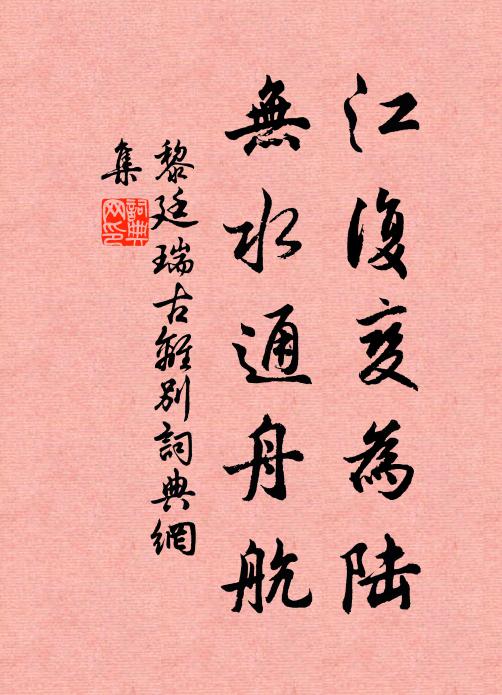 江復变為陆
無水通舟航
黎廷瑞古離别詞典網
集
詞典
网印